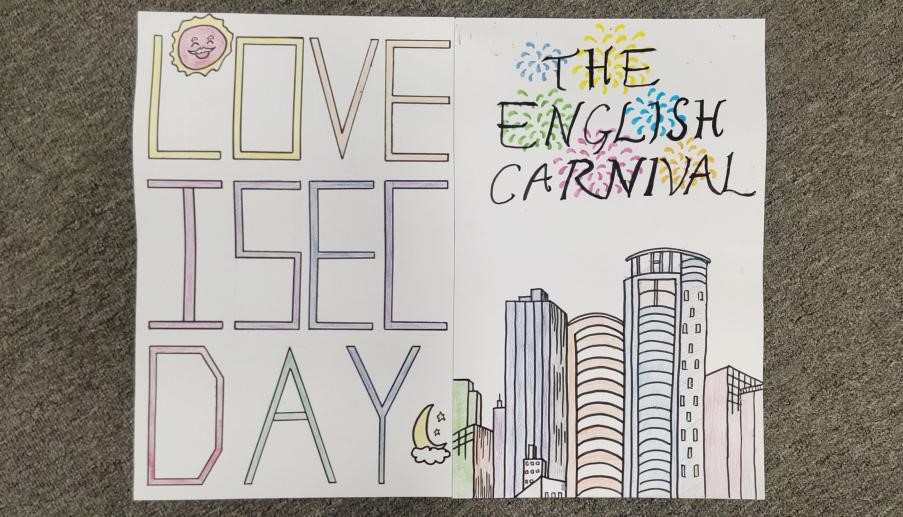 LOVE
ISEC
DAY
THE
ENGLISH
CARNIVAL